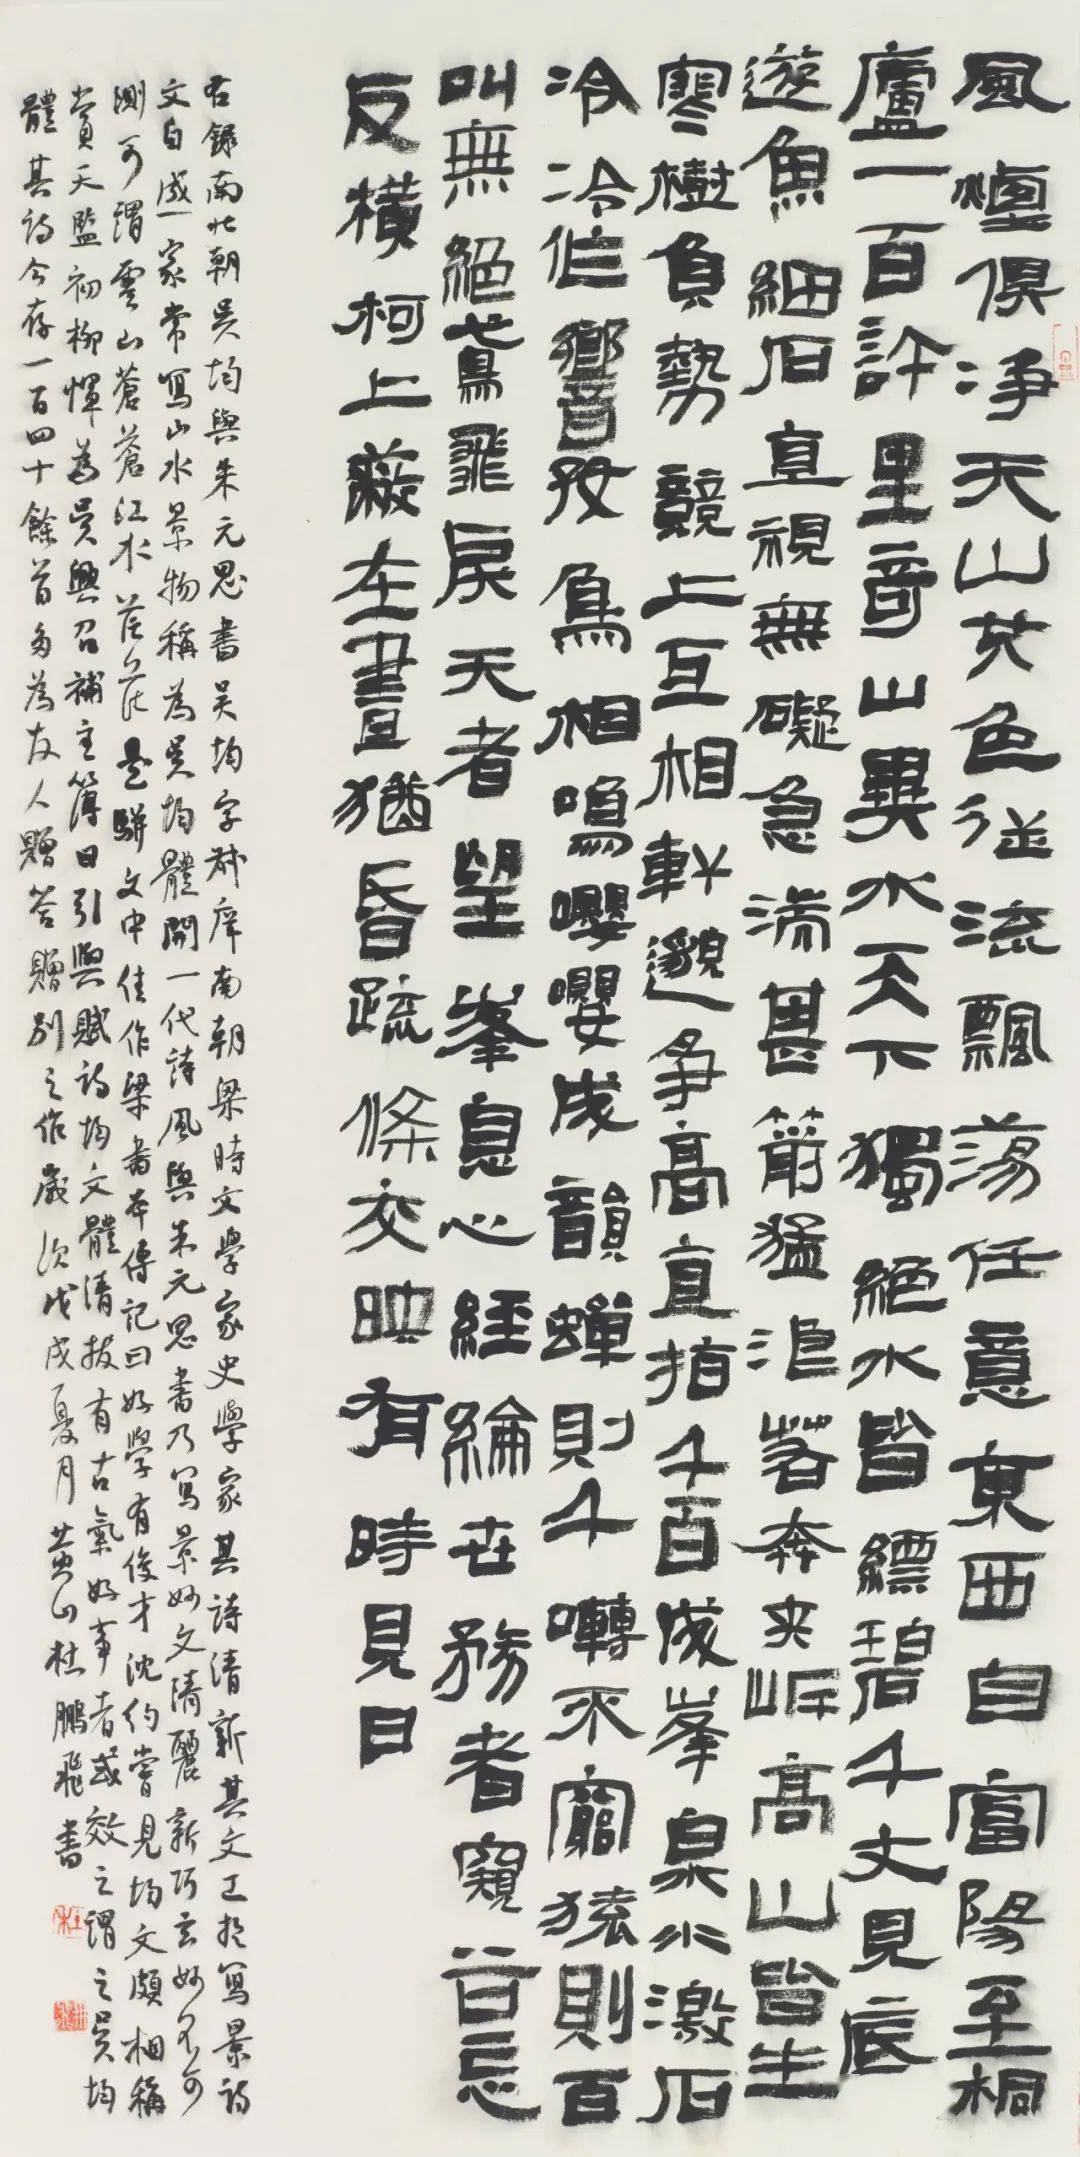 風煙俱淨天山共色從流飄蕩任意東西自富陽至桐
廬一百許里奇山異水天下獨絕水皆縹碧千丈見底
遊魚細石直視無礙急湍甚箭猛浪若奔夾岸高山皆生
寒樹負勢競上互相軒邈爭高直指千百成峯泉水激石
泠泠作響好鳥相鳴嚶嚶成韻蟬則千囀不窮猿則百
叫無絕鳶飛戾天者望峯息心經綸世務者窺谷忘
反橫柯上蔽在晝猶昏疏條交映有時見日
右錄南北朝吳均與朱元思書吳均字叔庠南朝梁時文學家史學家其詩清新其文工於寫景詩
文自成一家常寫山水景物稱為吳均體開一代詩風與朱元思書乃寫景妙文清麗新巧玄妙不可
測可謂雲山蒼蒼江水茫茫是駢文中佳作梁書本傳記曰好學有俊才沈約嘗見均文頗相稱
賞天監初柳惲為吳興召補主簿日引與賦詩均文體清拔有古氣好事者或效之謂之吳均
體其詩今存一百四十餘首多為友人贈答贈別之作歲次戊戌夏月黃山杜鵬飛書